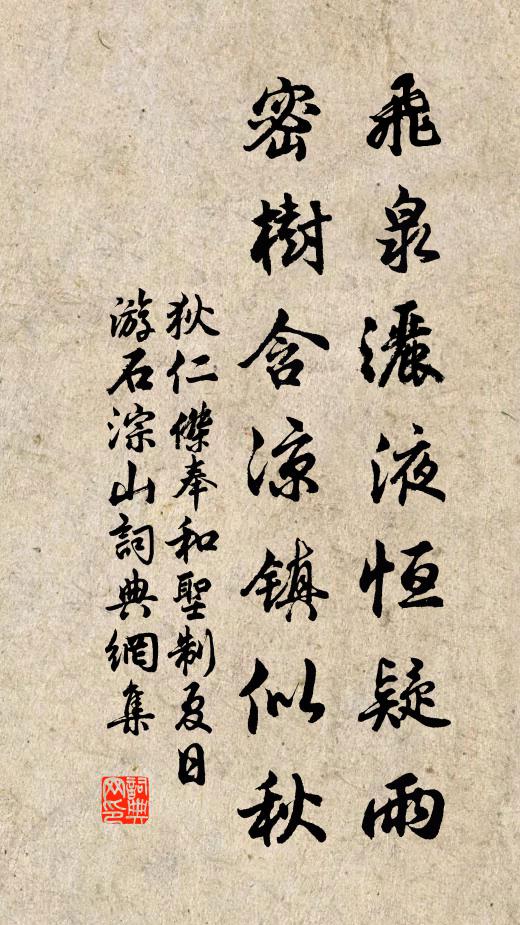 飛泉灑液恆疑雨
密樹含涼鎮似秋
狄仁傑奉和聖制夏日
游石淙山詞典網集
詞典
网印